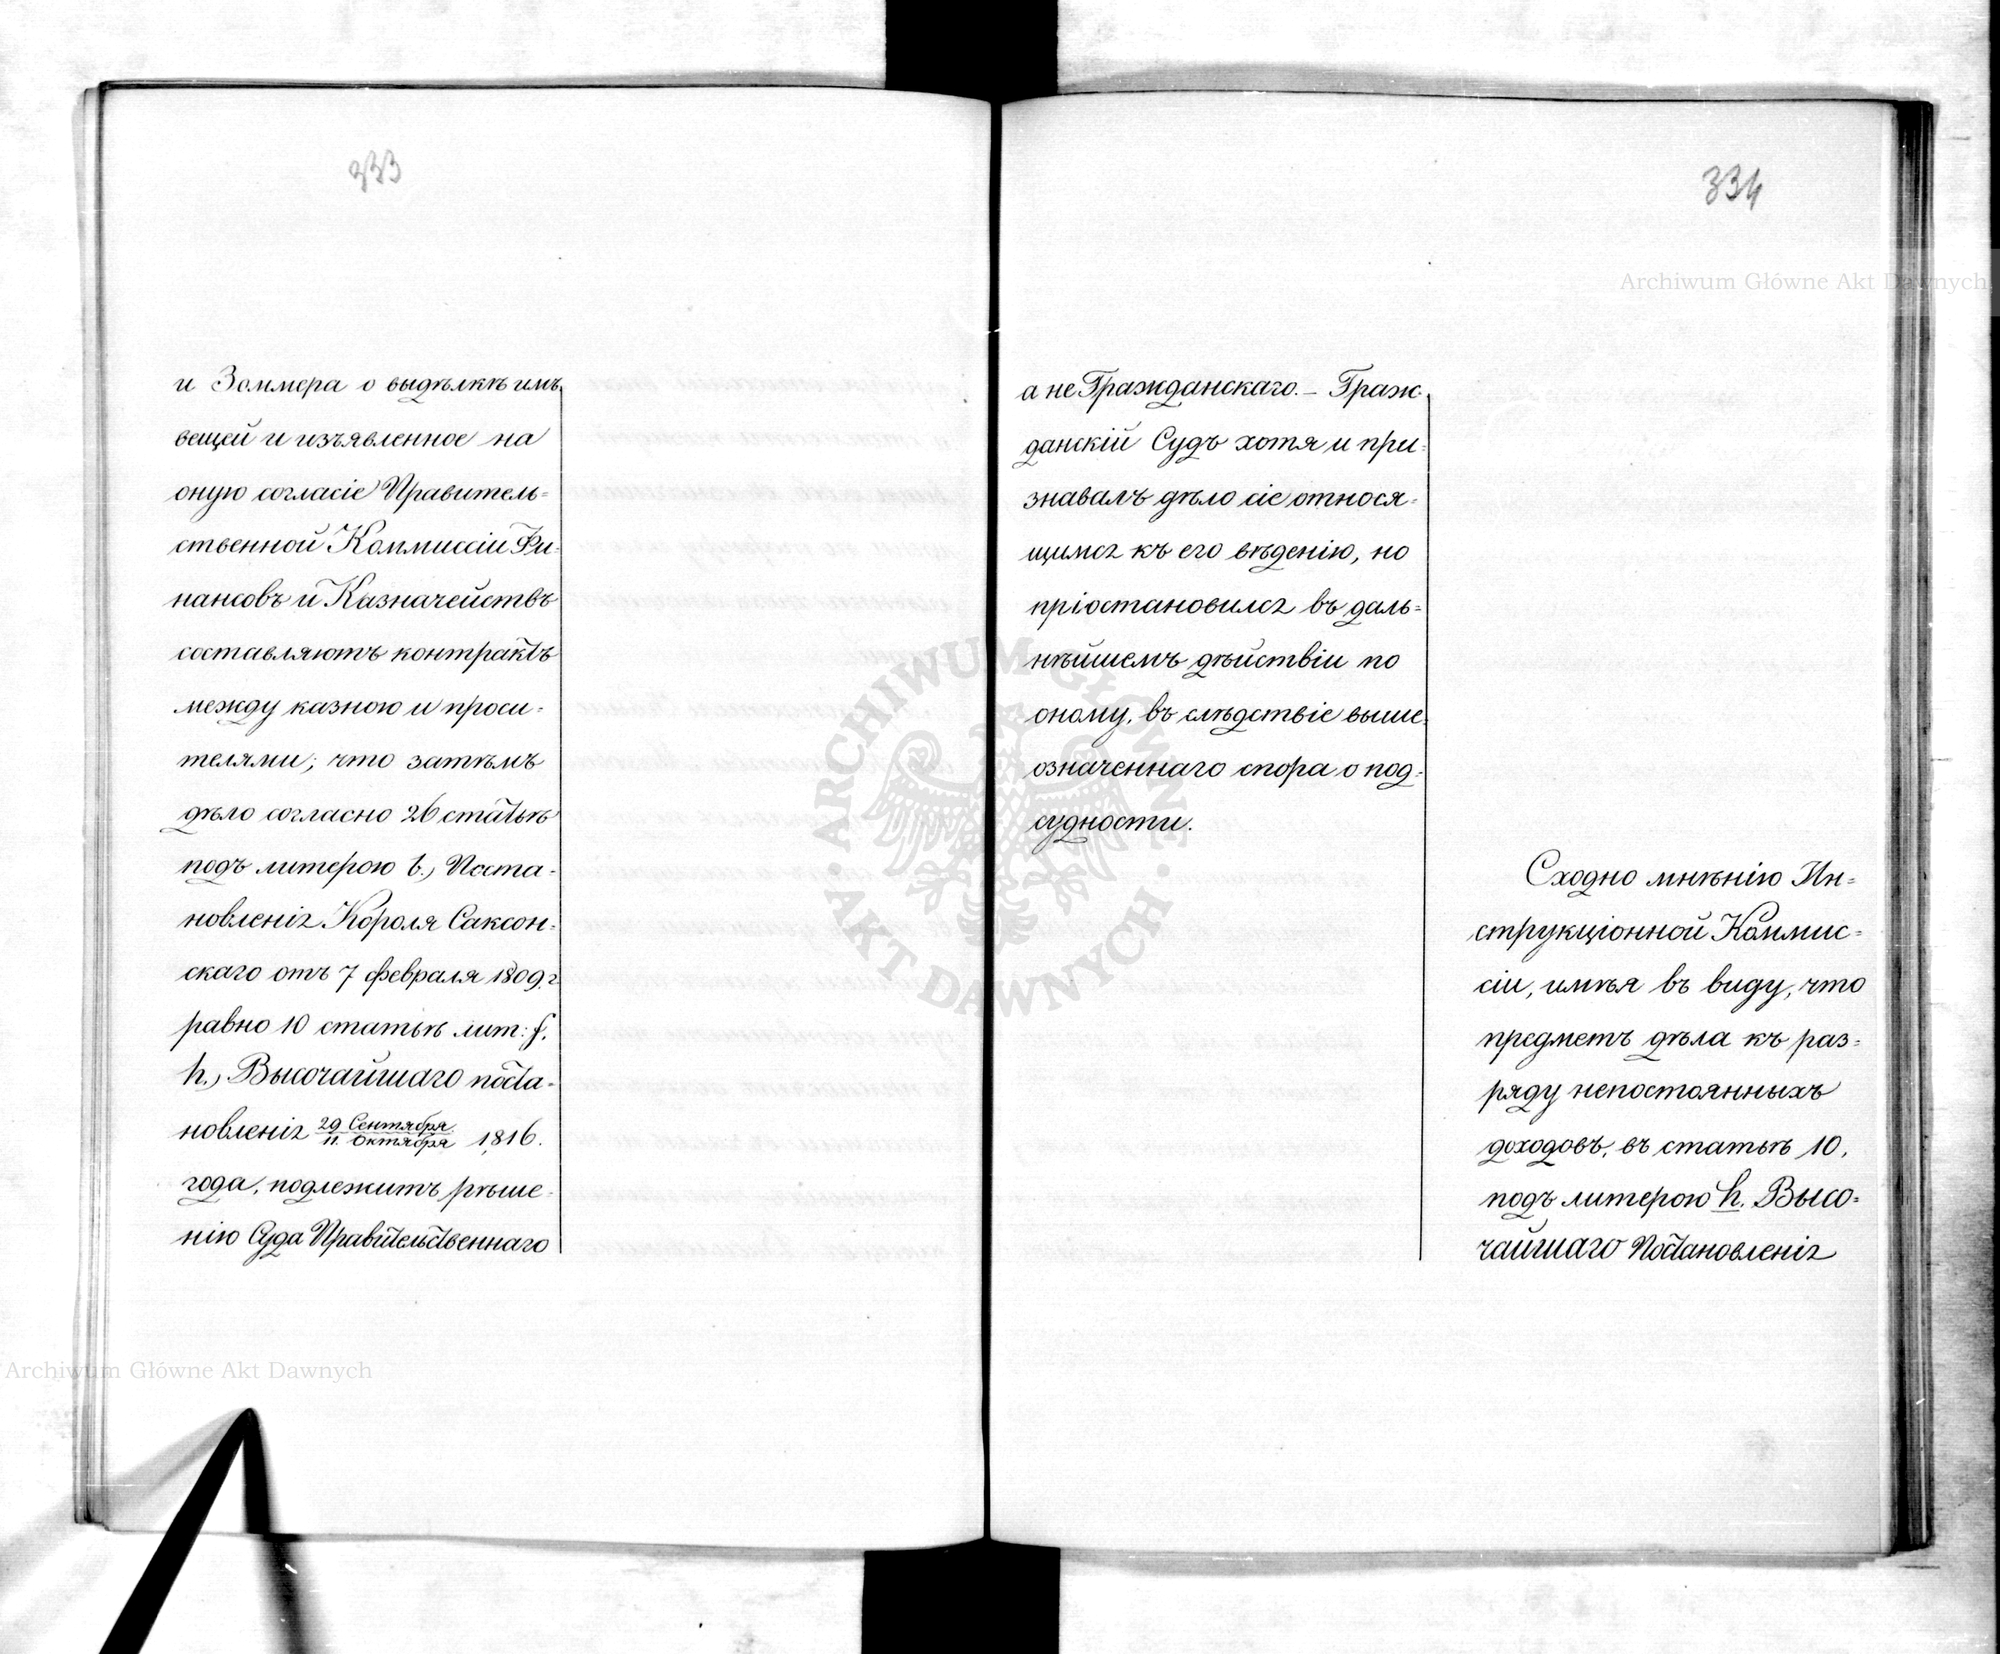 333
и Зоммера о выдѣлкѣ имъ
вещей и изъявленное на
оную согласіе Правитель=
ственной Коммиссіи Фи=
нансовъ и Казначействъ
составляютъ контрактъ
между казною и проси=
телями; что затѣмъ
дѣло согласно 26 статьѣ
подъ литерою b., Поста=
новленія Короля Саксон=
скаго отъ 7 февраля 1809 г.
равно 10 статьѣ лит: f.
h., Высочайшаго поста=
новленія 29 Сентября / 11. Октября 1816.
года, подлежитъ рѣше=
нію Суда Правительственнаго
334
а не Гражданскаго. – Граж=
данскій Судъ хотя и при=
знавалъ дѣло сіе относя=
щимся къ его вѣденію, но
пріостановился въ даль=
нѣйшемъ дѣйствіи по
оному, въ слѣдствіе выше=
означеннаго спора о под=
судности.
Сходно мнѣнію Ин=
струкціонной Коммис=
сіи, имѣя въ виду, что
предметъ дѣла къ раз=
ряду непостоянныхъ
доходовъ, въ статьѣ 10,
подъ литерою h. Высо=
чайшаго Постановленія
Archiwum Główne Akt Dawnych
Archiwum Główne Akt Dawnych
ARCHIWUM GŁÓWNE AKT DAWNYCH